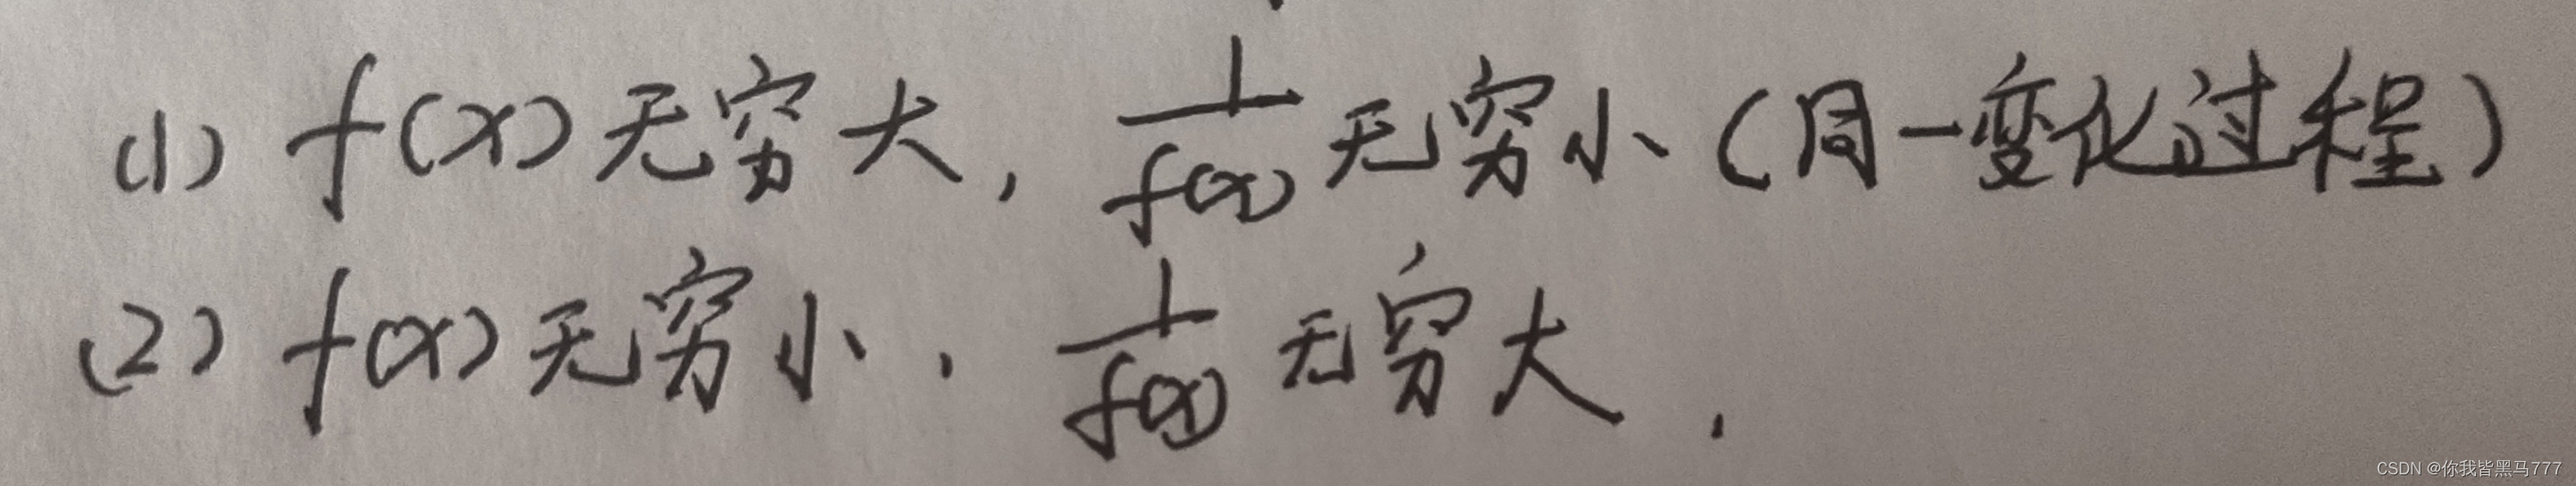 (1) f(x)无穷大, 1/f(x) 无穷小(同一变化过程)
(2) f(x)无穷小, 1/f(x) 无穷大,
CSDN @你我皆黑马777